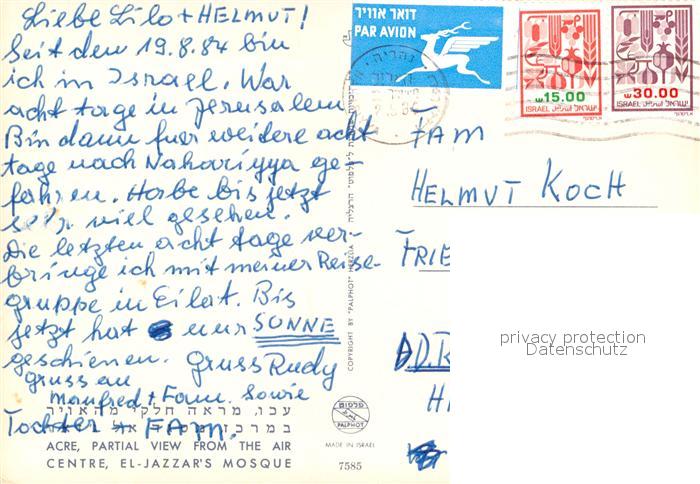 Liebe Lilo + HELMUT!
Seit den 19.8.84 bin
ich in Israel. War
acht tage in Jerusalem
Bin dann fuer weitere acht
tage nach Nahariyya ge-
fahren. Habe bis jetzt
sehr viel gesehen.
Die letzten acht tage ver-
bringe ich mit meiner Reise-
gruppe in Eilat. Bis
jetzt hat nur SONNE
geschienen. Gruss Rudy
Gruss an
Manfred + Fam. sowie
Tochter + FAM.
עכו, מראה חלקי מהאויר
במרכז
ACRE, PARTIAL VIEW FROM THE AIR
CENTRE, EL-JAZZAR'S MOSQUE
COPYRIGHT BY "PALPHOT" HERZLIA
פלפוט
PALPHOT
MADE IN ISRAEL
7585
דואר אוויר
PAR AVION
נהריה
15.00
ISRAEL ישראל
30.00
ISRAEL ישראל
FAM
HELMUT KOCH
FRIE
D.R
H
privacy protection
Datenschutz